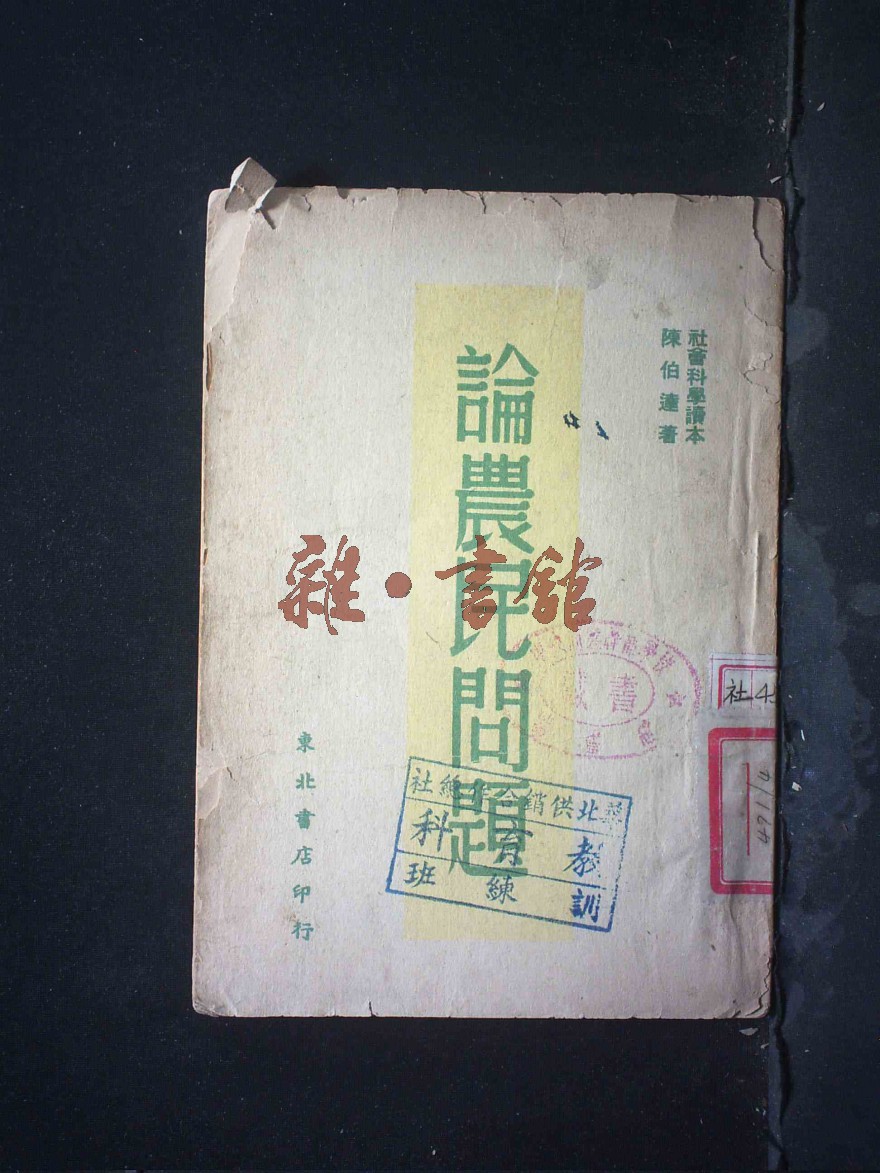 社會科學讀本
陳伯達著
論農民問題
東北書店印行
雜·書舘
藏書
社4
421/4
華北供銷合作總社
教育科
訓練班